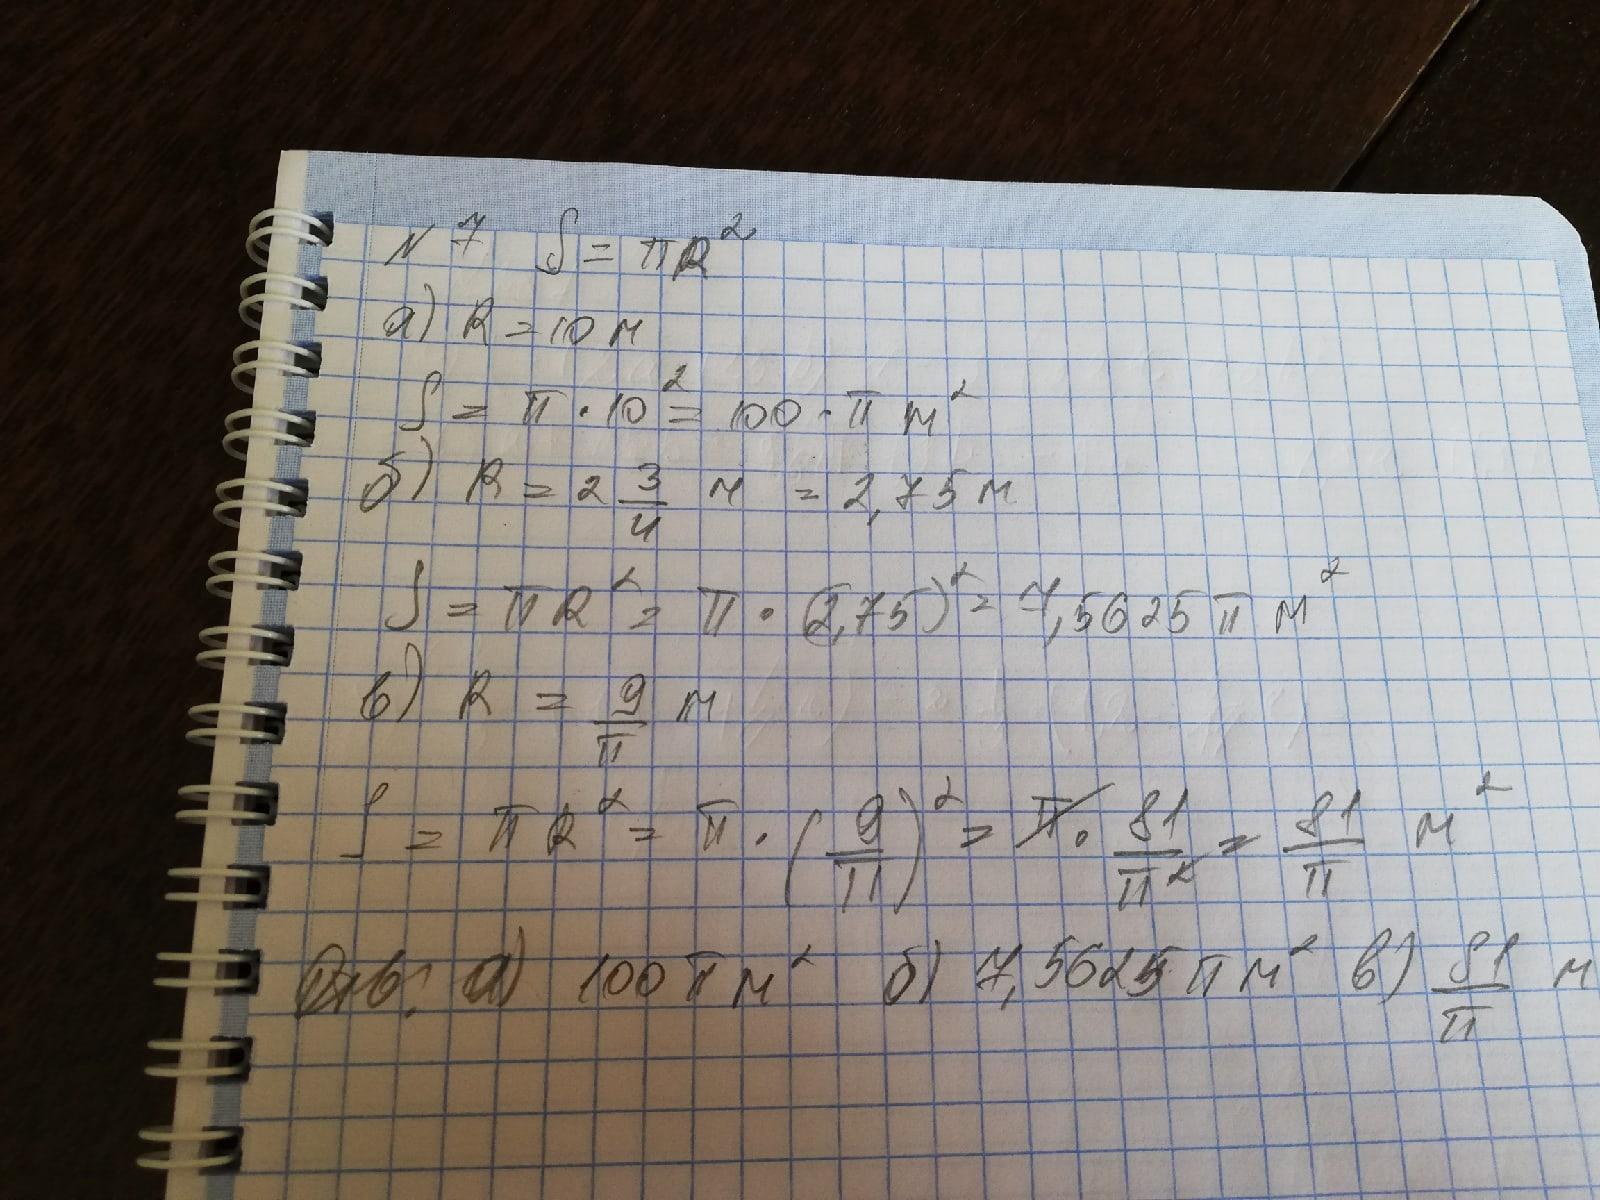 N 7 S = πR²
а) R = 10 м
S = π · 10² = 100 · π м²
б) R = 2 3/4 м = 2,75 м
S = πR² = π · (2,75)² = 7,5625 π м²
в) R = 9/π м
S = πR² = π · (9/π)² = π · 81/π² = 81/π м²
Отв: а) 100 π м² б) 7,5625 π м² в) 81/π м